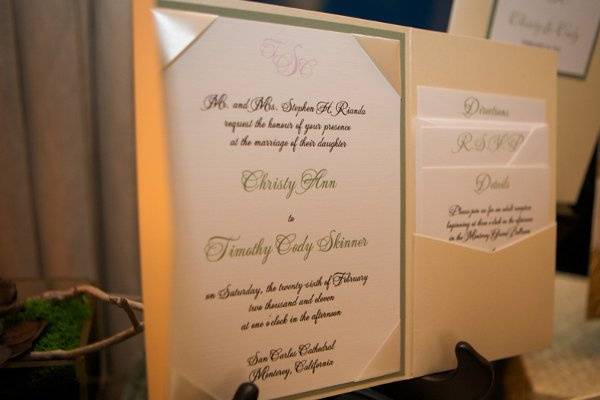 TSC
Mr. and Mrs. Stephen H. Rianda
request the honour of your presence
at the marriage of their daughter
Christy Ann
to
Timothy Cody Skinner
on Saturday, the twenty-sixth of February
two thousand and eleven
at one o'clock in the afternoon
San Carlos Cathedral
Monterey, California
Directions
R.S.V.P
Details
Please join us for an adult reception
beginning at three o'clock in the afternoon
in the Monterey Grand Ballroom
Christy & Cody